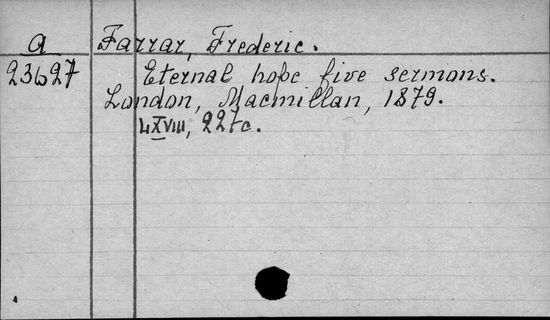 a Farrar, Frederic.
23627 Eternal hope five sermons.
London, Macmillan, 1879.
LXVIII, 227c.